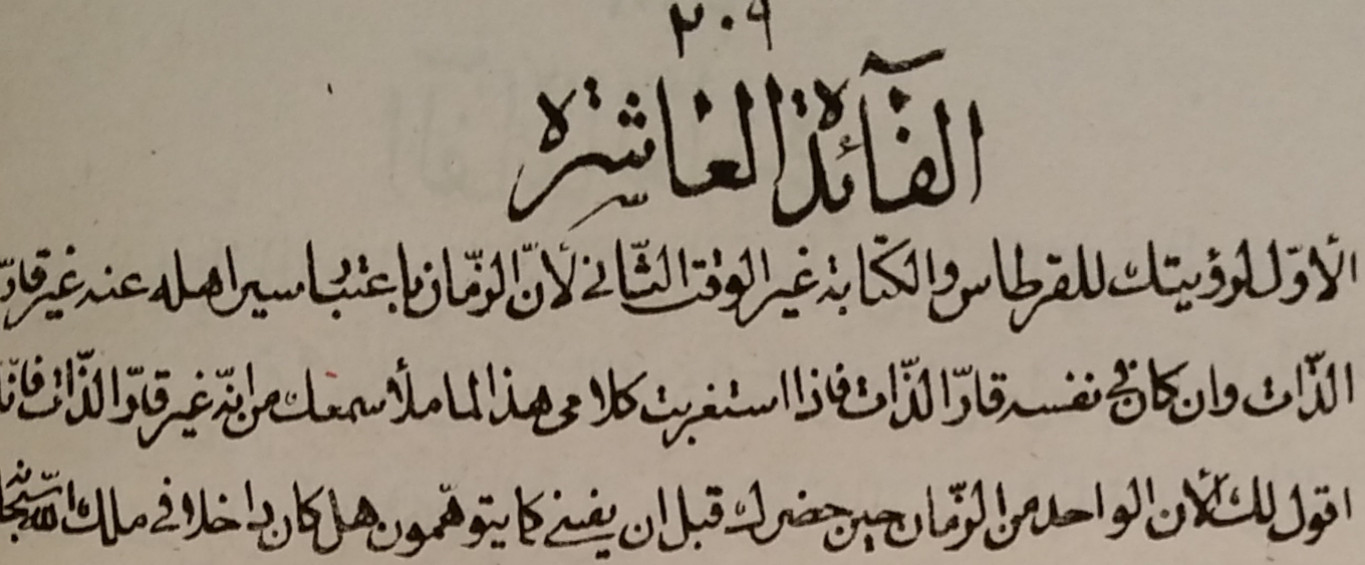 ٢٠٩
الفآئدة العاشرة
الأوّل لرؤيتك للقرطاس والكتابة غير الوقت الثّاني لأنّ الزّمان باعتبار سير اهله عنه غير قارّ
الذّات وان كان فى نفسه قارّ الذّات فاذا استغربت كلامى هذا لما ملأ سمعك من انّه غير قارّ الذّات فانّا
اقول لك الأن الواحد من الزّمان حين حضرك قبل ان يفنى كما يتوهّمون هل كان داخلا فى ملك اللّه